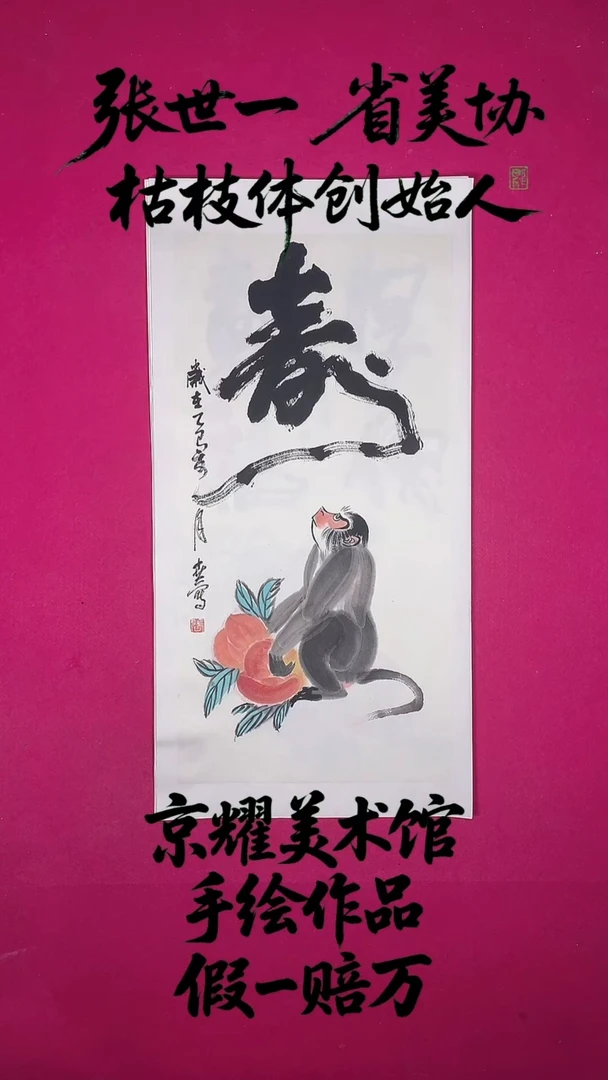 张世一 省美协
枯枝体创始人
寿
歲在乙巳
月
京耀美术馆
手绘作品
假一赔万